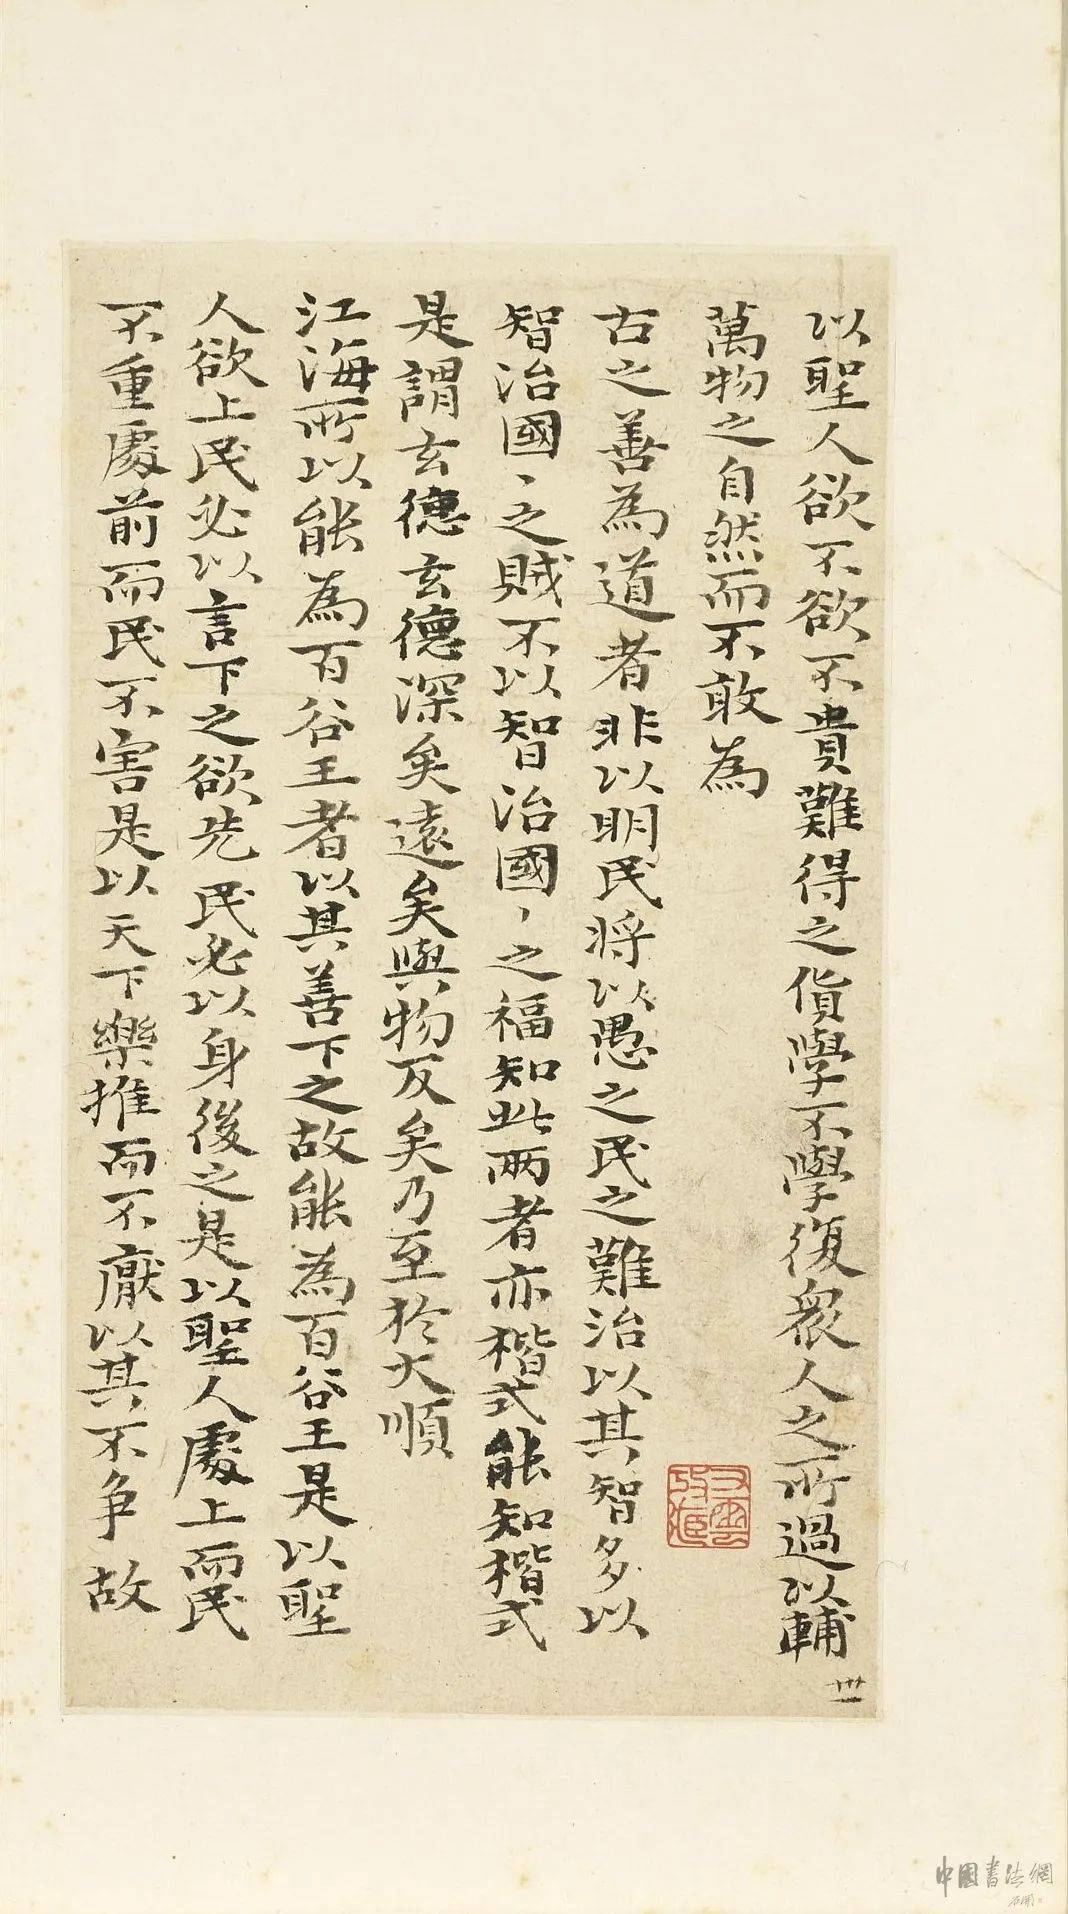 以聖人欲不欲不貴難得之貨學不學復衆人之所過以輔
萬物之自然而不敢為
古之善為道者非以明民將以愚之民之難治以其智多以
智治國、之賊不以智治國、之福知此兩者亦楷式能知楷式
是謂玄德玄德深矣遠矣與物反矣乃至於大順
江海所以能為百谷王者以其善下之故能為百谷王是以聖
人欲上民必以言下之欲先民必以身後之是以聖人處上而民
不重處前而民不害是以天下樂推而不厭以其不爭故
卅一
中國書法網